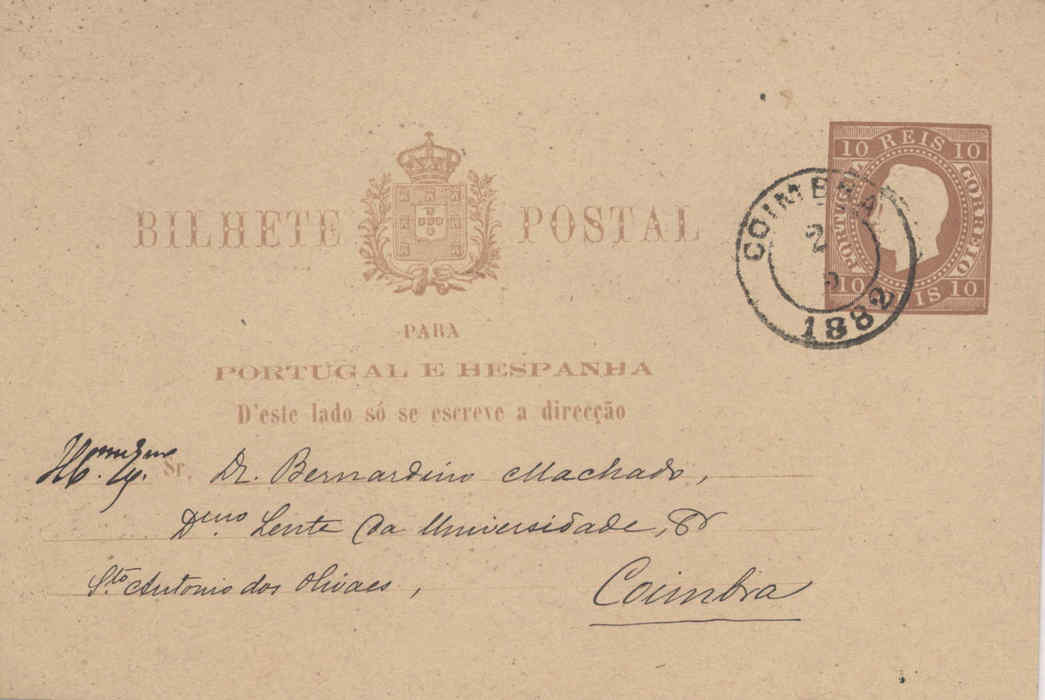 BILHETE POSTAL
10 REIS 10
CORREIO
10 10
COIMBRA
2
1882
PARA
PORTUGAL E HESPANHA
D'este lado só se escreve a direcção
Sr. Dr. Bernardino Machado,
D.mo Lente da Universidade, &
S.to Antonio dos Olivaes,
Coimbra